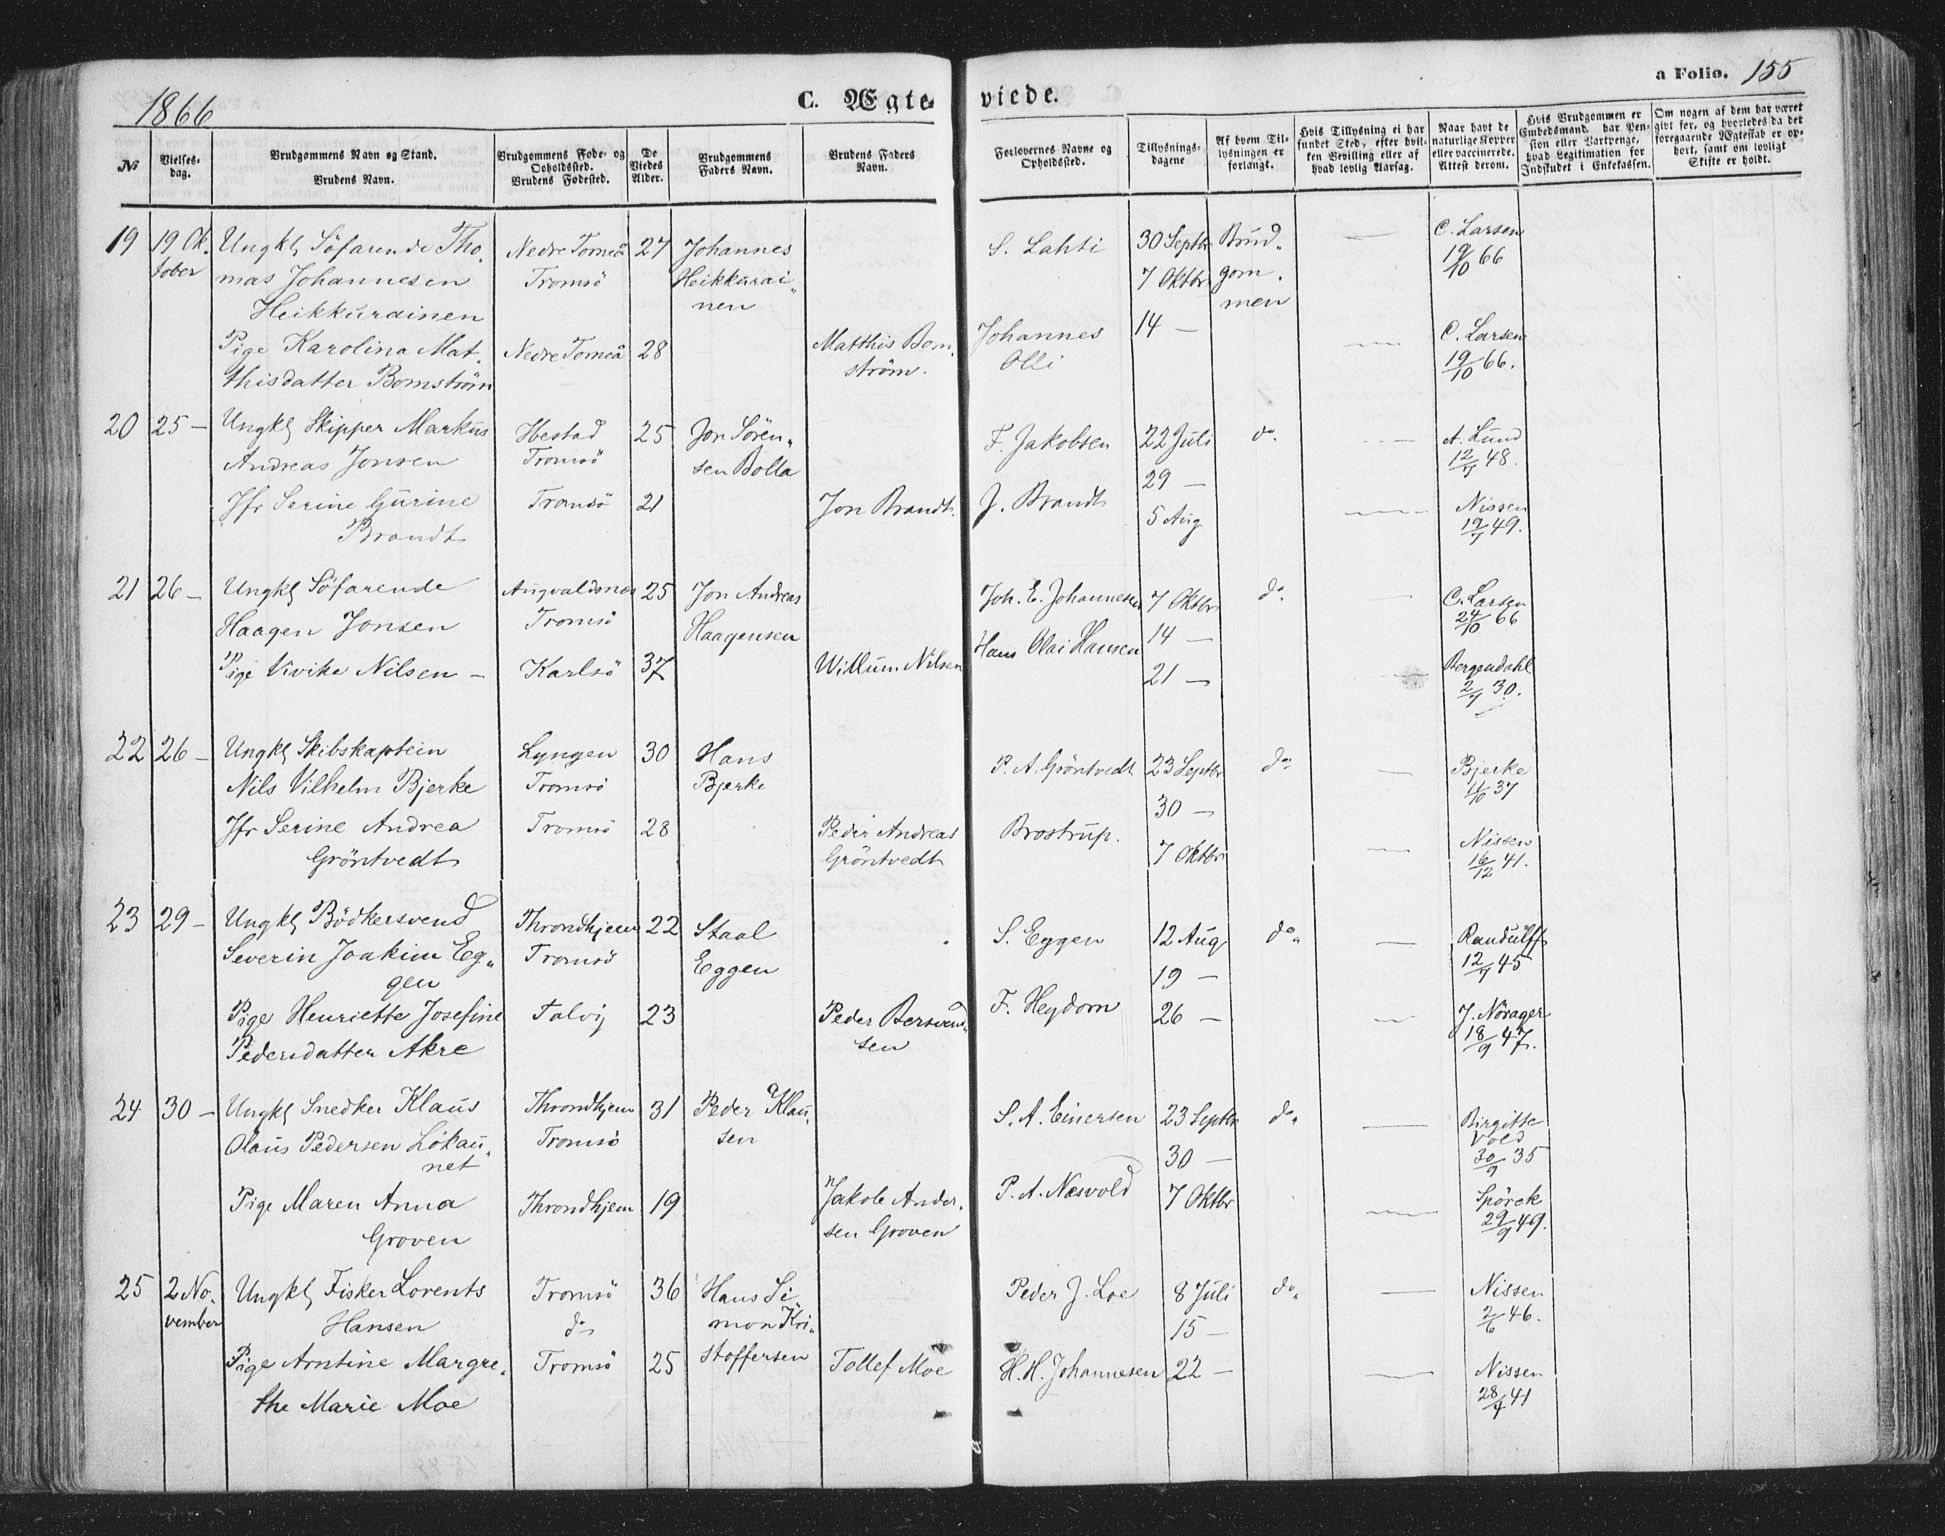 1866
C. Ægte-
viede.
a Folio. 155
No
Vielses-
dag.
Brudgommens Navn og Stand.
Brudens Navn.
Brudgommens Føde- og
Opholdssted.
Brudens Fødested.
De
Viedes
Alder.
Brudgommens
Faders Navn.
Brudens Faders
Navn.
Forlovernes Navne og
Opholdssted.
Tillysnings-
dagene
Af hvem Til-
lysningen er
forlangt.
Hvis Tillysning ei har
fundet Sted, efter hvil-
ken Bevilling eller af
hvad lovlig Aarsag.
Naar havt de
naturlige Kopper
eller vaccinerede.
Attest derom.
Hvis Brudgommen er
Embedsmand, har Pen-
sion eller Vartpenge,
hvad Legitimation for
Indskudet i Enkekassen.
Om nogen af dem har været
gift før, og hvorledes da det
foregaaende Ægteskab er op-
hørt, samt om lovligt
Skifte er holdt.
19 19 Ok- Ungkl Söfarende Tho- Nedre Torneå 27 Johannes S. Lahti 30 Septbr Brud- — C. Larsen
tober mas Johannesen Tromsö Heikkurai- 7 Oktbr gom- 19/10 66
Heikkurainen nen men
Pige Karolina Mat- Nedre Torneå 28 Matthis Bom- Johannes 14 — — C. Larsen
thisdatter Bomström ström. Olli 19/10 66.
20 25 — Ungkl Skipper Markus Hestad 25 Jon Sören- F. Jakobsen 22 Juli do. — A. Lund
Andreas Jonsen Tromsö sen Bolla 29 — 12/7 48.
Jfr Serine Gurine Tromsö 21 Jon Brandt. J. Brandt 5 Aug — Nissen
Brandt 19/7 49.
21 26 — Ungkl Söfarende Augvaldsnæs 25 Jon Andreas Joh. E. Johannesen 7 Oktbr do. — C. Larsen
Haagen Jonsen Tromsö Haagensen Hans Olai Hansen 14 — 24/10 66
Pige Vivike Nilsen — Karlsö 37 Willum Nilsen 21 — — Bergendahl
2/7 30.
22 26 — Ungkl Skibskaptein Lyngen 30 Hans P. A. Gröntvedt 23 Septbr do — Bjerke
Nils Vilhelm Bjerke Tromsö Bjerke 30 — 4/10 37
Jfr Serine Andrea Tromsö 28 Peder Andreas Brostrup. 7 Oktbr — Nissen
Gröntvedt Gröntvedt 16/12 41.
23 29 — Ungkl Bödkersvend Throndhjem 22 Staal S. Eggen 12 Aug do. — Randulff
Severin Joakim Eg- Tromsö Eggen 19 — 12/7 45
gen
Pige Henriette Josefine Talvig 23 Peder Bersvend- F. Heydorn 26 — — J. Nörager
Pedersdatter Akre sen 18/9 47.
24 30 — Ungkl Snedker Klaus Throndhjem 31 Peder Klau- S. A. Einersen 23 Septbr do. — Birgitte
Olaus Pedersen Lökau- Tromsö sen 30 — Vold
net 30/9 35
Pige Maren Anna Throndhjem 19 Jakob Ander- P. A. Næsvold 7 Oktbr — Spörck
Groven sen Groven 29/9 49.
25 2 No- Ungkl Fisker Lorents Tromsö 36 Hans Si- Peder J. Loe 8 Juli do. — Nissen
vember Hansen do mon Kri- 15 — 2/6 46.
Pige Arntine Margre- Tromsö 25 stoffersen Tollef Moe H. H. Johannesen 22 — — Nissen
the Marie Moe 28/7 41